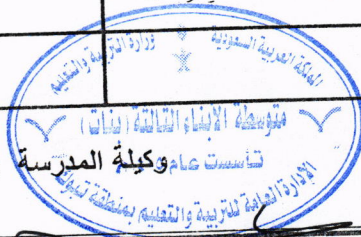 المملكة العربية السعودية
وزارة التربية والتعليم
متوسطة الأبناء الثالثة (بنات)
تأسست عام
وكيلة المدرسة
الإدارة العامة للتربية والتعليم بمنطقة تبوك